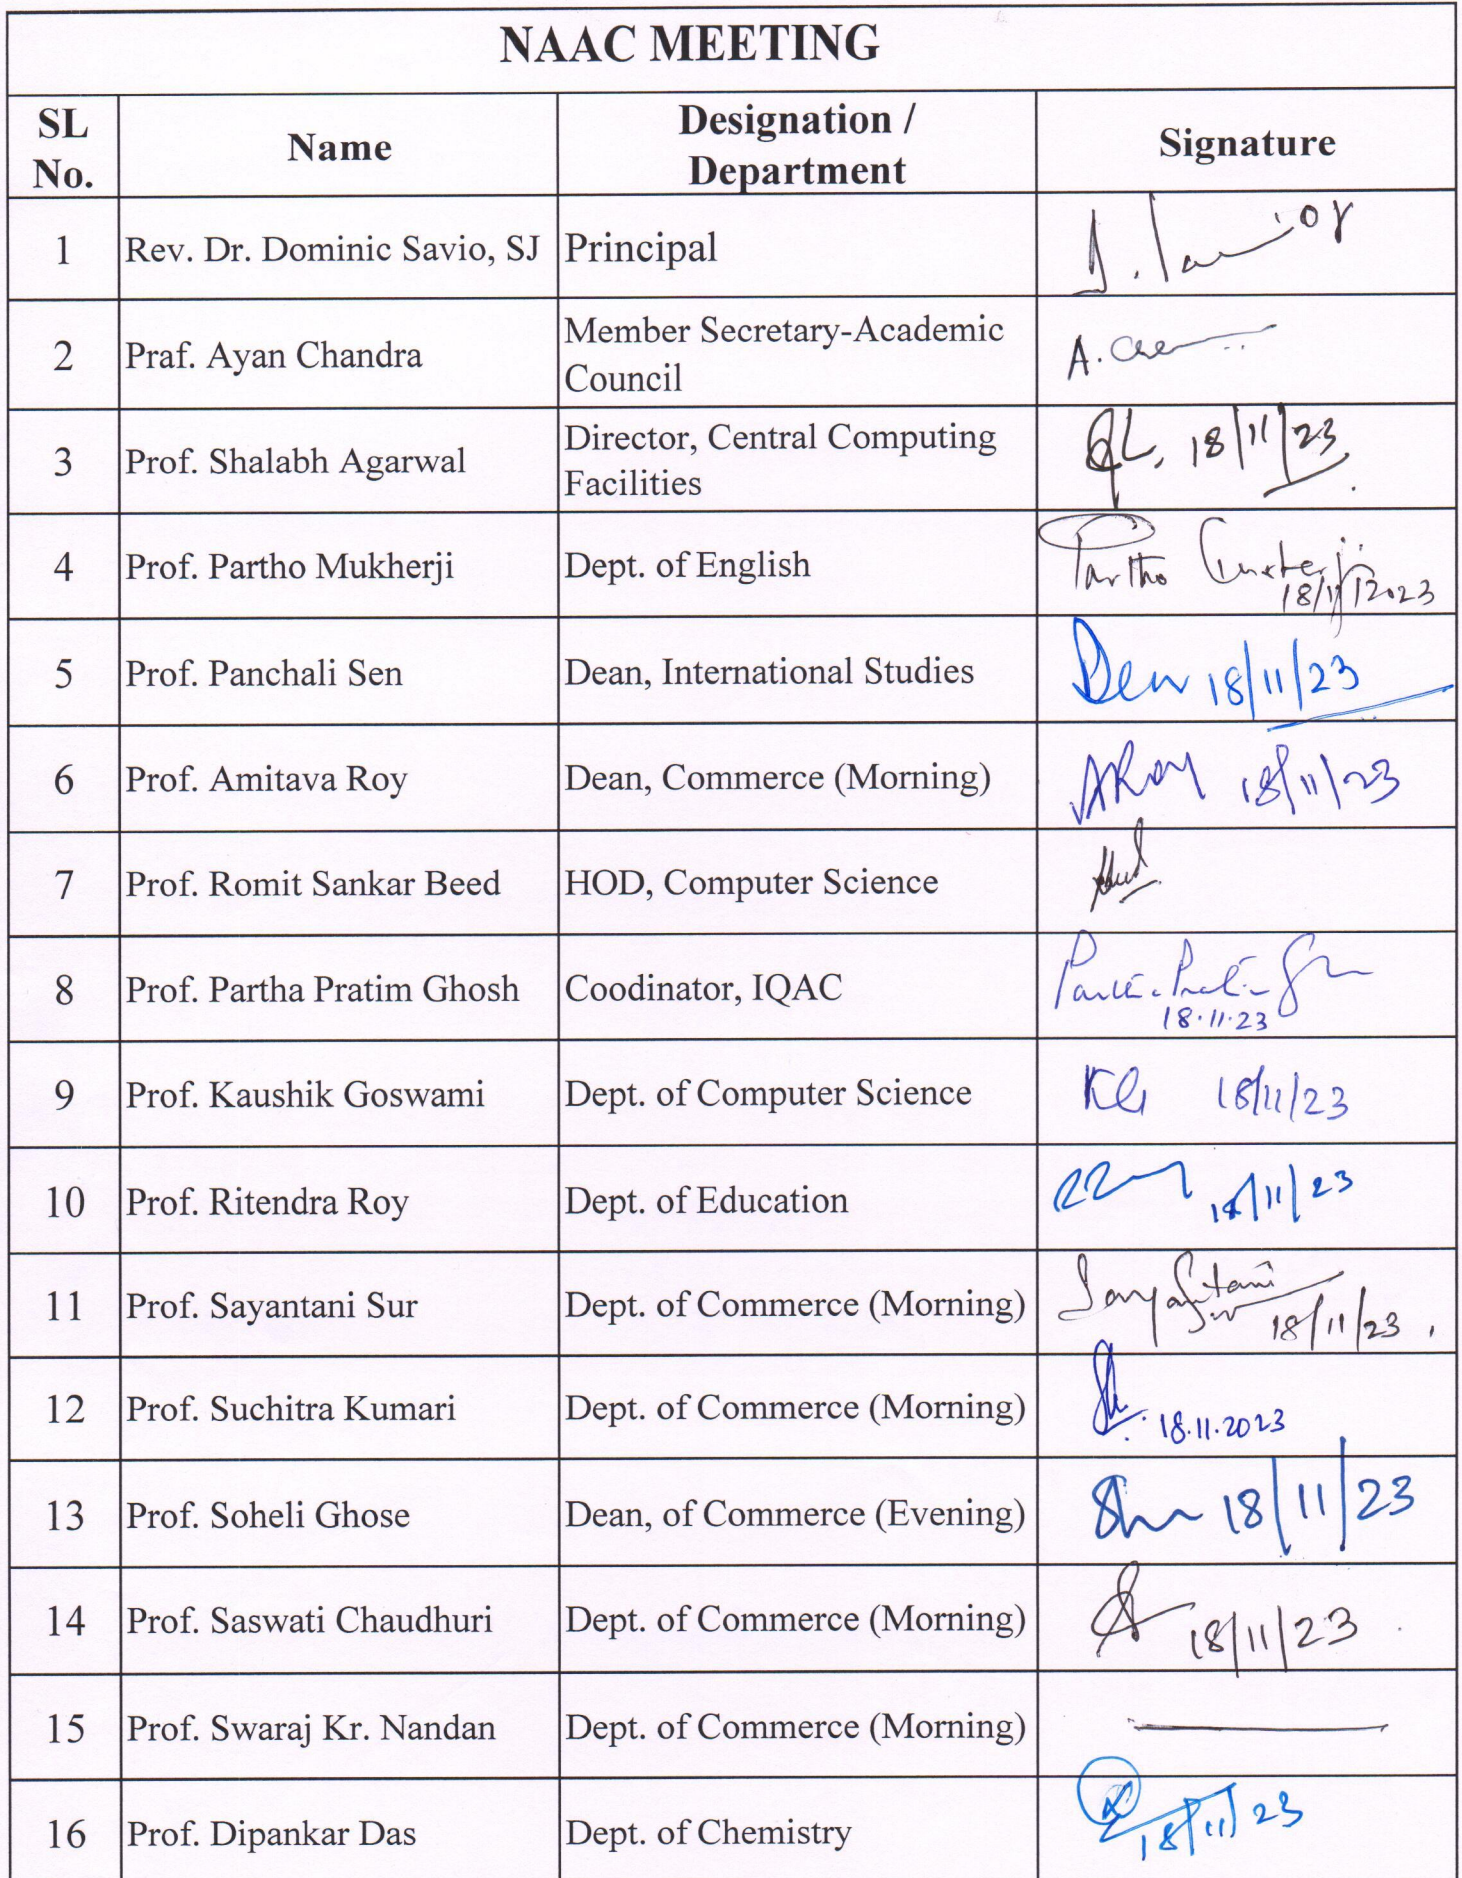 NAAC MEETING
SL No. Name Designation / Department Signature
1 Rev. Dr. Dominic Savio, SJ Principal
2 Praf. Ayan Chandra Member Secretary-Academic Council A.
3 Prof. Shalabh Agarwal Director, Central Computing Facilities 18/11/23
4 Prof. Partho Mukherji Dept. of English Partho 18/11/2023
5 Prof. Panchali Sen Dean, International Studies 18/11/23
6 Prof. Amitava Roy Dean, Commerce (Morning) ARoy 18/11/23
7 Prof. Romit Sankar Beed HOD, Computer Science
8 Prof. Partha Pratim Ghosh Coodinator, IQAC 18.11.23
9 Prof. Kaushik Goswami Dept. of Computer Science KG 18/11/23
10 Prof. Ritendra Roy Dept. of Education 18/11/23
11 Prof. Sayantani Sur Dept. of Commerce (Morning) Sayantani Sur 18/11/23
12 Prof. Suchitra Kumari Dept. of Commerce (Morning) 18.11.2023
13 Prof. Soheli Ghose Dean, of Commerce (Evening) 18/11/23
14 Prof. Saswati Chaudhuri Dept. of Commerce (Morning) 18/11/23
15 Prof. Swaraj Kr. Nandan Dept. of Commerce (Morning)
16 Prof. Dipankar Das Dept. of Chemistry 18/11/23